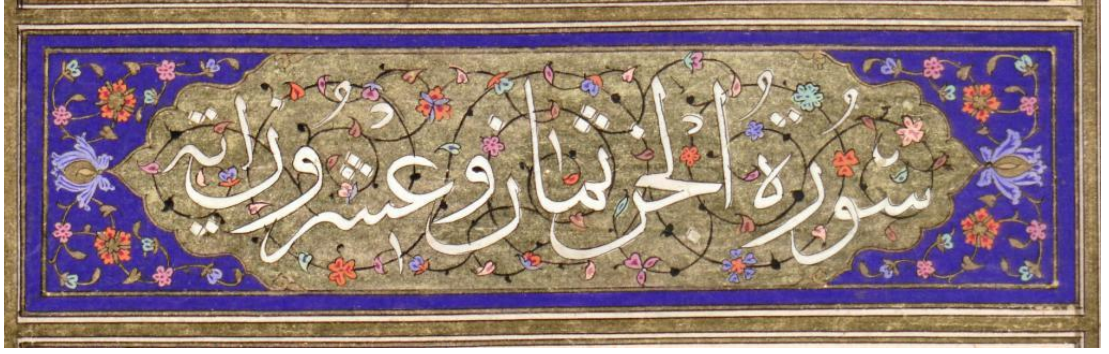 سُورَةُ الْجِنّ ثمان وعشرون اٰية